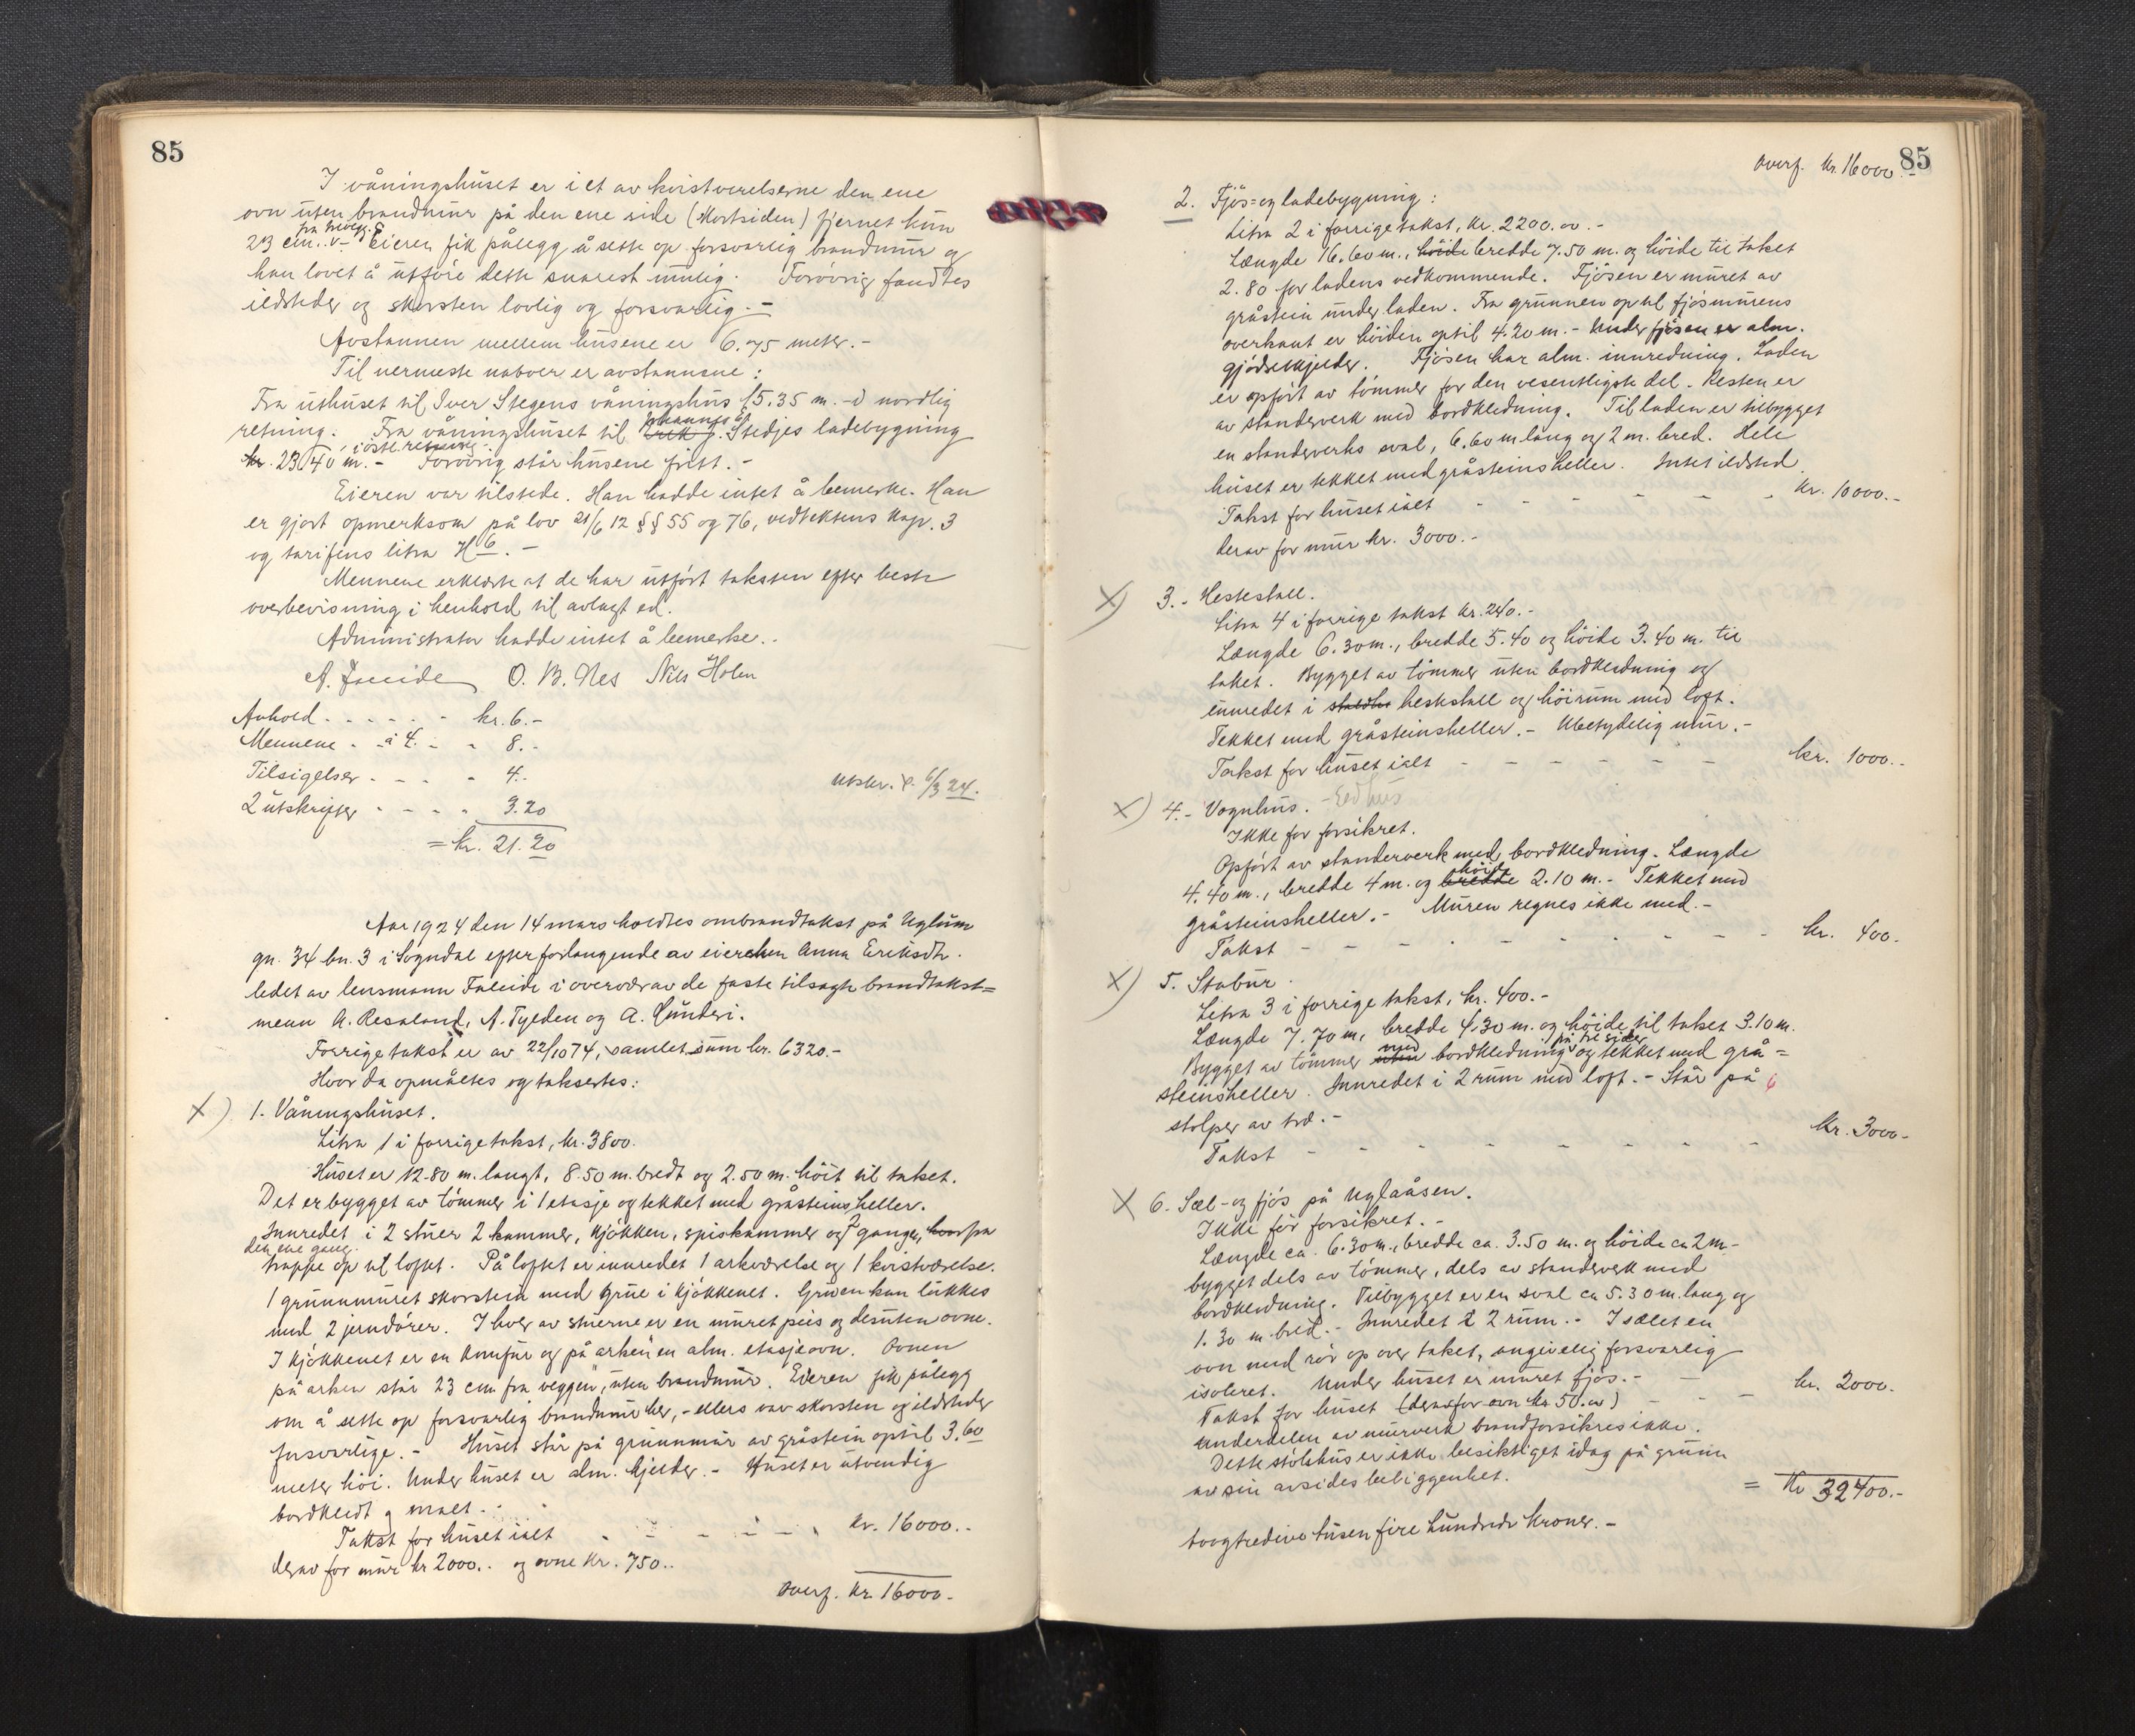 85
I våningshuset er i et av kvistværelserne den ene
ovn uten brandmur på den ene side (Kortsiden) fjernet kun
fra trævegg.
23 cm. Eieren fik pålegg å sette op forsvarlig brandmur og
han lovet å utføre dette snarest mulig. Forøvrig fandtes
ildsteder og skorsten lovlig og forsvarlig. -
Avstannen mellem husene er 6.75 meter. -
Til nermeste naboer er avstannene:
Fra uthuset til Iver Stegens våningshus 15.35 m. - i nordlig
Johannes
retning. Fra våningshuset til Erik J. Stedjes ladebygning
i østl. retning
kr. 23.40 m. - Forøvrig står husene fritt. -
Eieren var tilstede. Han hadde intet å bemerke. Han
er gjort opmerksom på lov 21/6 12 §§ 55 og 76, vedtektens Kap. 3
og tarifens litra H 6. -
Mennene erklærte at de har utført taksten efter beste
overbevisning i henhold til avlagt ed.
Administrator hadde intet å bemerke. -
A. Faleide O. B. Nes Nils Holen
Anhold - - - - - kr. 6. -
Mennene - - á 4. - - 8. -
Tilsigelser - - - - 4. -
2 utskrifter - - - - 3.20
= kr. 21.20
Utskr. 6/3 24.
Aar 1924 den 14 mars holdtes ombrandtakst på Uglum
gn. 34 bn. 3 i Sogndal efter forlangende av eieren Anna Eriksdtr.
ledet av lensmann Faleide i overvær av de faste tilsagte brandtakst=
menn A. Resaland, A. Tylden og A. Hunderi.
Forrige takst er av 22/10 74, samlet sum kr. 6320. -
Hvor da opmåltes og taksertes:
X) 1. Våningshuset.
Litra 1 i forrige takst, kr. 3800.
Huset er 12.80 m. langt, 8.50 m. bredt og 2.50 m. höit til taket.
Det er bygget av tömmer i 1 etasje og tekket med gråsteinsheller.
Innredet i 2 stuer 2 kammer, kjökken, spiskammer og 2 ganger, hvor fra
den ene gang.
trappe op til loftet. På loftet er innredet 1 arkværelse og 1 kvistværelse.
1 grunnmuret skorstein med grue i kjökkenet. Gruen kan lukkes
med 2 jerndörer. I hver av stuerne er en muret peis og desuten ovne.
I kjökkenet er en komfur og på arken en alm. etasjeovn. Ovnen
på arken står 23 cm fra veggen, uten brandmur. Eieren fik pålegg
om å sette op forsvarlig brandmur her, - ellers var skorsten og ildsteder
forsvarlige. - Huset står på grunnmur av gråstein optil 3.60
meter höi. Under huset er alm. kjelder. - Huset er utvendig
bordkledt og malt. -
Takst for huset ialt - - - - - kr. 16000. -
derav for mur kr 2000. - og ovne kr. 750. -
Overf. kr. 16000. -
85
Overf. kr. 16000. -
2. Fjös= og ladebygning:
Litra 2 i forrige takst, kr. 2200.00. -
Længde 16.60 m., höide bredde 7.50 m. og höide til taket
2.80 for ladens vedkommende. Fjösen er muret av
gråstein under laden. Fra grunnen op til fjösmurens
overkant er höiden optil 4.20 m. - Under fjösen er alm.
gjödselkjelder. Fjösen har alm. innredning. Laden
er opfört av tömmer for den vesentligste del. Resten er
av standerverk med bordkledning. Til laden er tilbygget
en standerverks sval, 6.60 m lang og 2 m. bred. Hele
huset er tekket med gråsteinsheller. Intet ildsted.
Takst for huset ialt - - - - - - kr. 10000. -
derav for mur kr. 3000. -
X) 3. - Hestestall.
Litra 4 i forrige takst kr. 240. -
Længde 6.30 m., bredde 5.40 og höide 3.40 m. til
taket. Bygget av tömmer uten bordkledning og
innredet i hestestall og höirum med loft.
Tekket med gråsteinsheller. - Ubetydelig mur. -
Takst for huset ialt - - - - - - kr. 1000. -
X) 4. - Vognhus. - Eldhus
Ikke för forsikret.
Opfört av standerverk med bordkledning. Længde
höide
4.40 m., bredde 4 m. og bredde 2.10 m. - Tekket med
gråsteinsheller. - Muren regnes ikke med. -
Takst - - - - - - - - - kr. 400. -
X) 5. Stabur.
Litra 3 i forrige takst, kr. 400. -
Længde 7.70 m, bredde 4.30 m. og höide til taket 3.10 m.
med på tre sider
Bygget av tömmer uten bordkledning og tekket med grå=
steinsheller. Innredet i 2 rum med loft. - Står på 6
stolper av træ. -
Takst - - - - - - - - kr. 3000 -
X 6. Sæl- og fjös på Uglaåsen.
Ikke för forsikret. -
Længde ca. 6.30 m., bredde ca. 3.50 m. og höide ca 2 m -
bygget dels av tömmer, dels av standerverk med
bordkledning. Tilbygget er en sval ca 5.30 m. lang og
1.30 m bred. - Innredet i 2 rum. - I sælet en
ovn med rör op over taket, angivelig forsvarlig
isoleret. Under huset er muret fjös. -
Takst for huset (derav for ovn kr 50.00) - - - kr. 2000.
Underdelen av murverk brandforsikres ikke.
Dette stölshus er ikke besiktiget idag på grunn
av sin avsides beliggenhet.
= Kr 32400. -
toogtredive tusen fire hundrede kroner. -